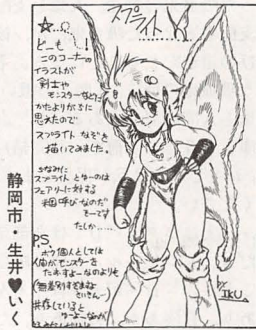 スプライト
どーも
このコーナーの
イラストが
剣士や
モンスターなどに
かたよりがちに
思えたので
スプライトなぞを
描いてみました。
ちなみに
スプライトとゆーのは
フェアリーに対する
呼びなのだ
そーです
たしか……
P.S.
ボク個人としては
人間がモンスターを
たおすよーなのよりも
(無差別すぎまね
共存していると
by IKU
静岡市・生井♥いく